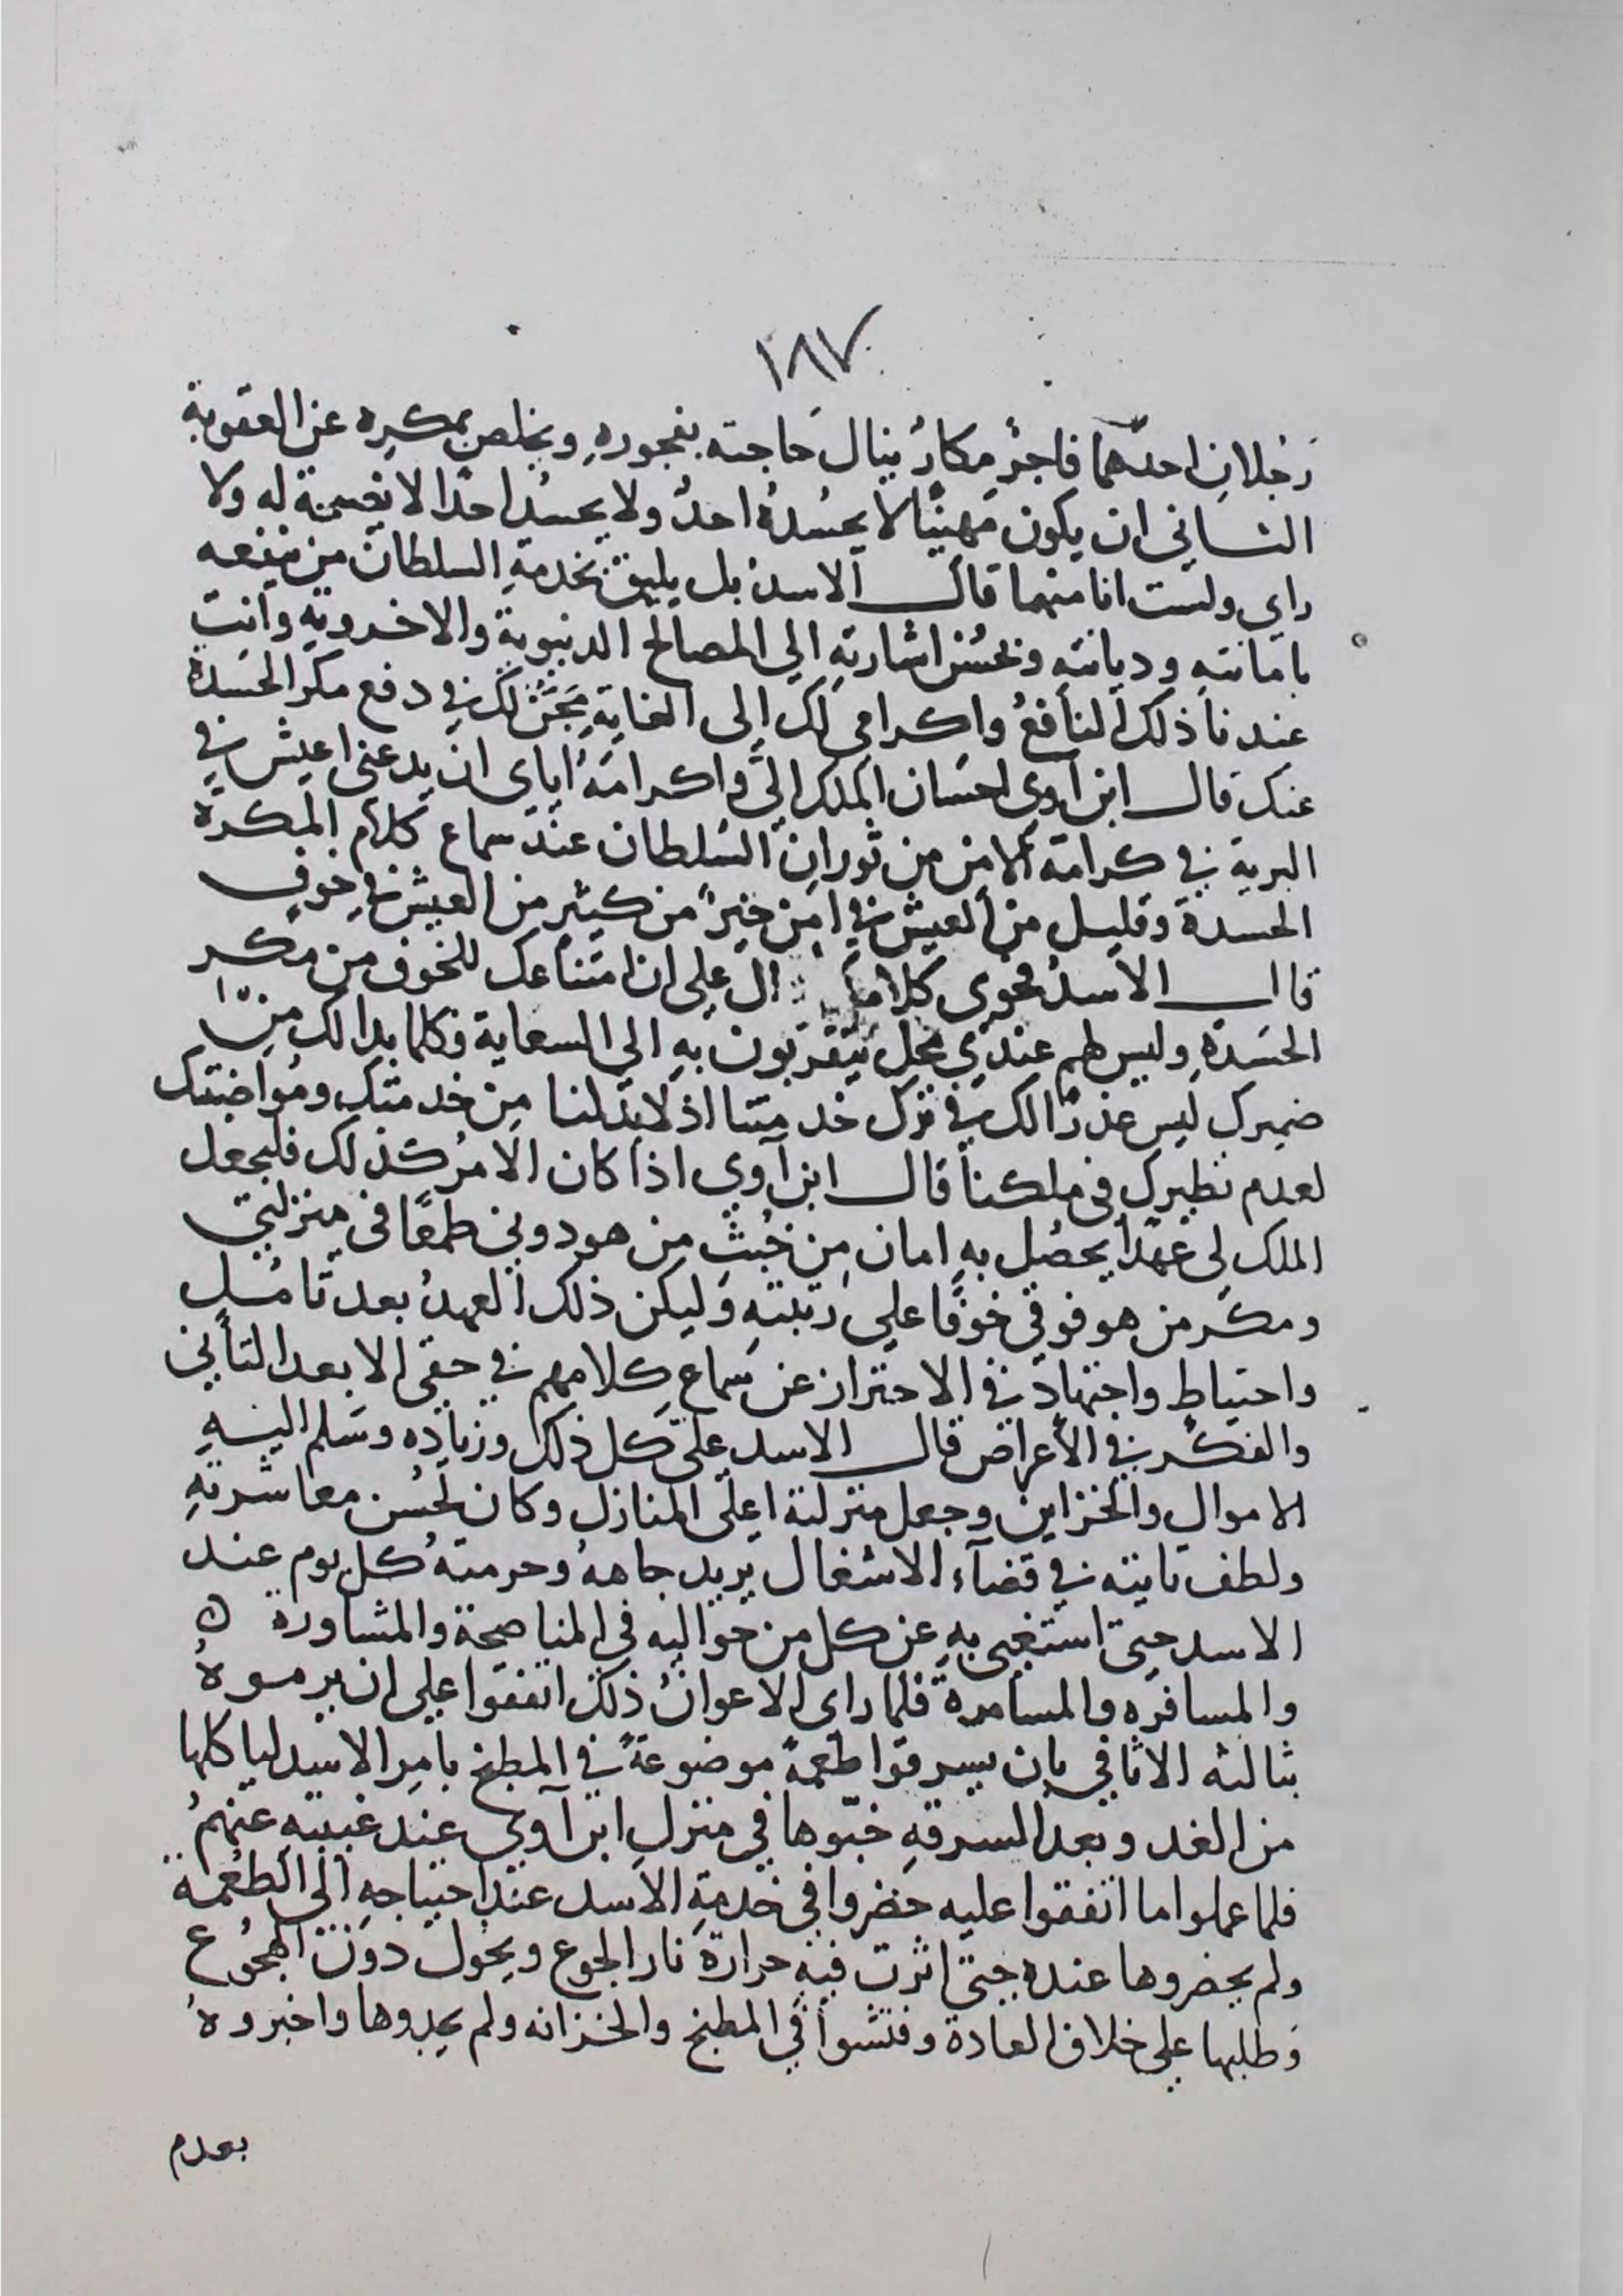 ١٨٧
رَجُلانِ احدهما فاجرٌ مكارٌ ينال حَاجته بفجورهِ ويخلص بمكرِه عن العقوبة
الثاني ان يكون مَهينًا لا يحسُدهُ احدٌ ولا يحسُد احدًا لا نفسية له ولا
راي ولست انا منهما قال الاسدُ بل يليق بخدمةِ السلطان من ينفعه
بامانتهِ وديانتهِ وبحُسْن اشارتهِ الي المصالح الدنيوية والاخرويةِ وانت
عندنا ذلك النافعُ واكرامي لك إلى الغايةِ مَجَنٌ لك في دفع مكر الحَسدة
عنك قال ابن آوي احسَان الملك اليَّ واكرامَهُ اياى ان يدعني اعيش في
البرية في كرامة الامن من ثورانِ السُلطان عند سماع كلام المكرة
الحسدة وقليل من العيش في امن خيرٌ من كثير من العيش في خوفٍ
قال الاسدُ فحوى كلامك دال على ان امتناعك للخوف من مكر
الحسَدةِ وليس لهم عندي محل يتقربون بهِ الي السعاية وكلما بدا لك من
ضميرك ليس عذرًا لك في ترك خدمتنا اذ لا بدّ لنا من خدمتك ومُواضبتك
لعدم نظيرك في ملكنا قال ابن آوي اذا كان الامرُ كذلك فليجعل
الملك لى عَهدًا يحصُل به امان مِن خُبثِ مِن هو دوني طمعًا في منزلتي
ومكر من هو فوقي خوفًا على رتبتهِ وليكن ذلك العهدُ بعد تامُل
واحتياط واجتهاد في الاحتراز عن سماع كلامهم في حقي الا بعد التأني
والفكر في الأعراض قال الاسد عليَّ كل ذلك وزياده وسَلم اليهِ
الاموال والخزاين وجعل منزلته اعلى المنازل وكان لحُسن معاشرتهِ
ولطف تانيته في قضآء الاشغال يريد جاههُ وحرمتهُ كل يوم عند
الاسد حتى استغنى بهِ عن كل من حواليه في المناصحة والمشاورة ٥
والمسافره والمسامرة فلما راى الاعوانُ ذلك اتفقوا على ان يرموهُ
بثالثه الاثافي بان يسرقوا طُعمةً موضوعةً في المطبخ بامرِ الاسد لياكلها
من الغد وبعد السرقهِ خبّوها في منزل ابن آوي عند غيبتهِ عنهمُ
فلما عملوا ما اتفقوا عليه حَضروا في خدمةِ الاسد عند احتياجهِ الى الطعمة
ولم يحضروها عنده حتى اثرت فيهِ حرارة نار الجوع ويحُول دون الهجُوع
وَطلبها على خلاف العادة وفتشوا في المطبخ والخزانه ولم يجدوها واخبروهُ
بعدم